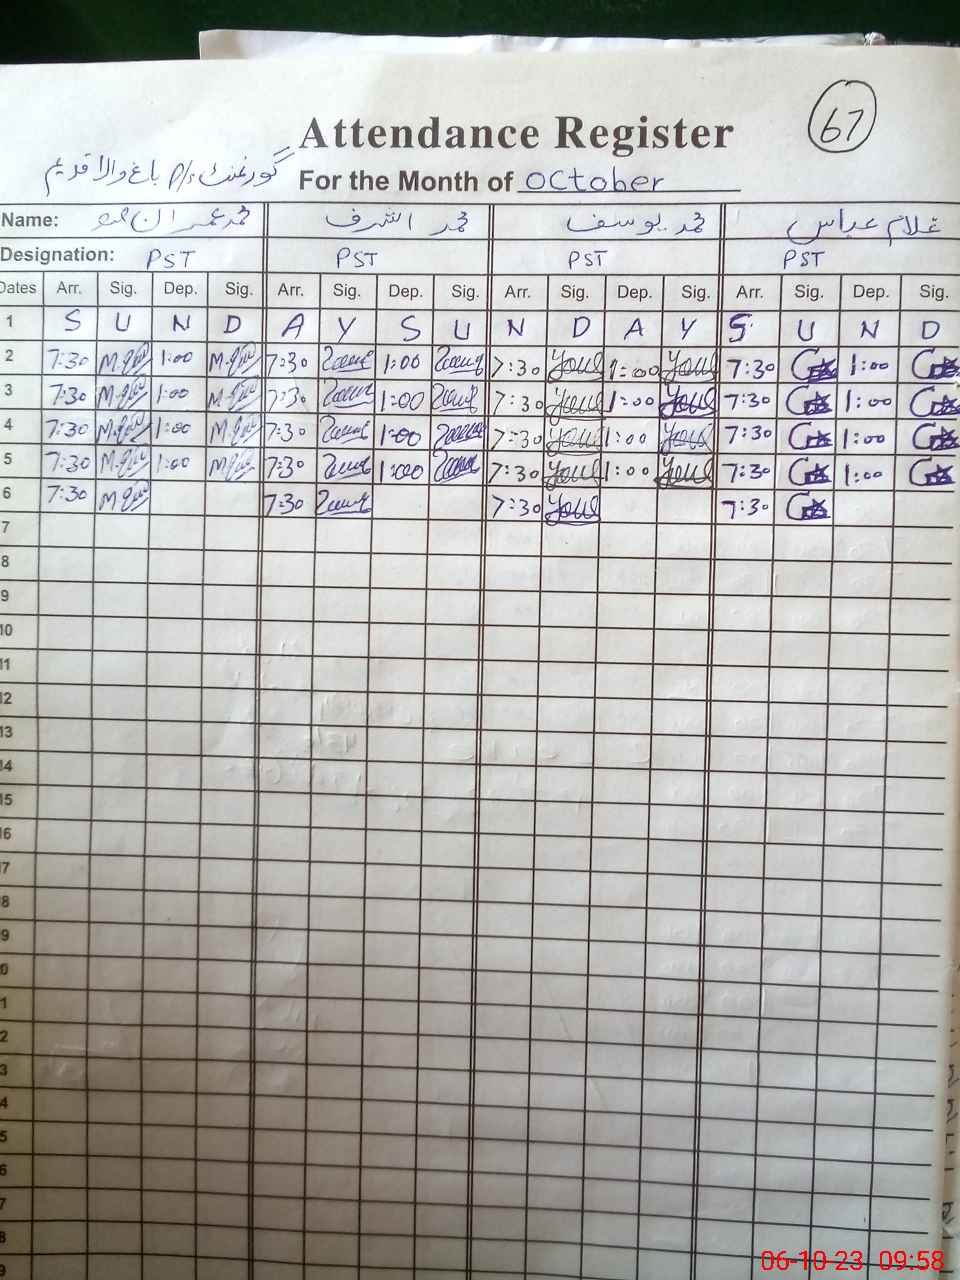 67
Attendance Register
گورنمنٹ P/s باغ والا قدیم
For the Month of October
Name: محمد عمران محمد اشرف محمد یوسف غلام عباس
Designation: PST PST PST PST
Dates Arr. Sig. Dep. Sig. Arr. Sig. Dep. Sig. Arr. Sig. Dep. Sig. Arr. Sig. Dep. Sig.
1 S U N D A Y S U N D A Y S U N D
2 7:30 1:00 7:30 1:00 7:30 1:00 7:30 1:00
3 7:30 1:00 7:30 1:00 7:30 1:00 7:30 1:00
4 7:30 1:00 7:30 1:00 7:30 1:00 7:30 1:00
5 7:30 1:00 7:30 1:00 7:30 1:00 7:30 1:00
6 7:30 7:30 7:30 7:30
7
8
9
10
11
12
13
14
15
16
7
8
9
0
1
2
3
4
5
6
7
8
9
06-10-23 09:58